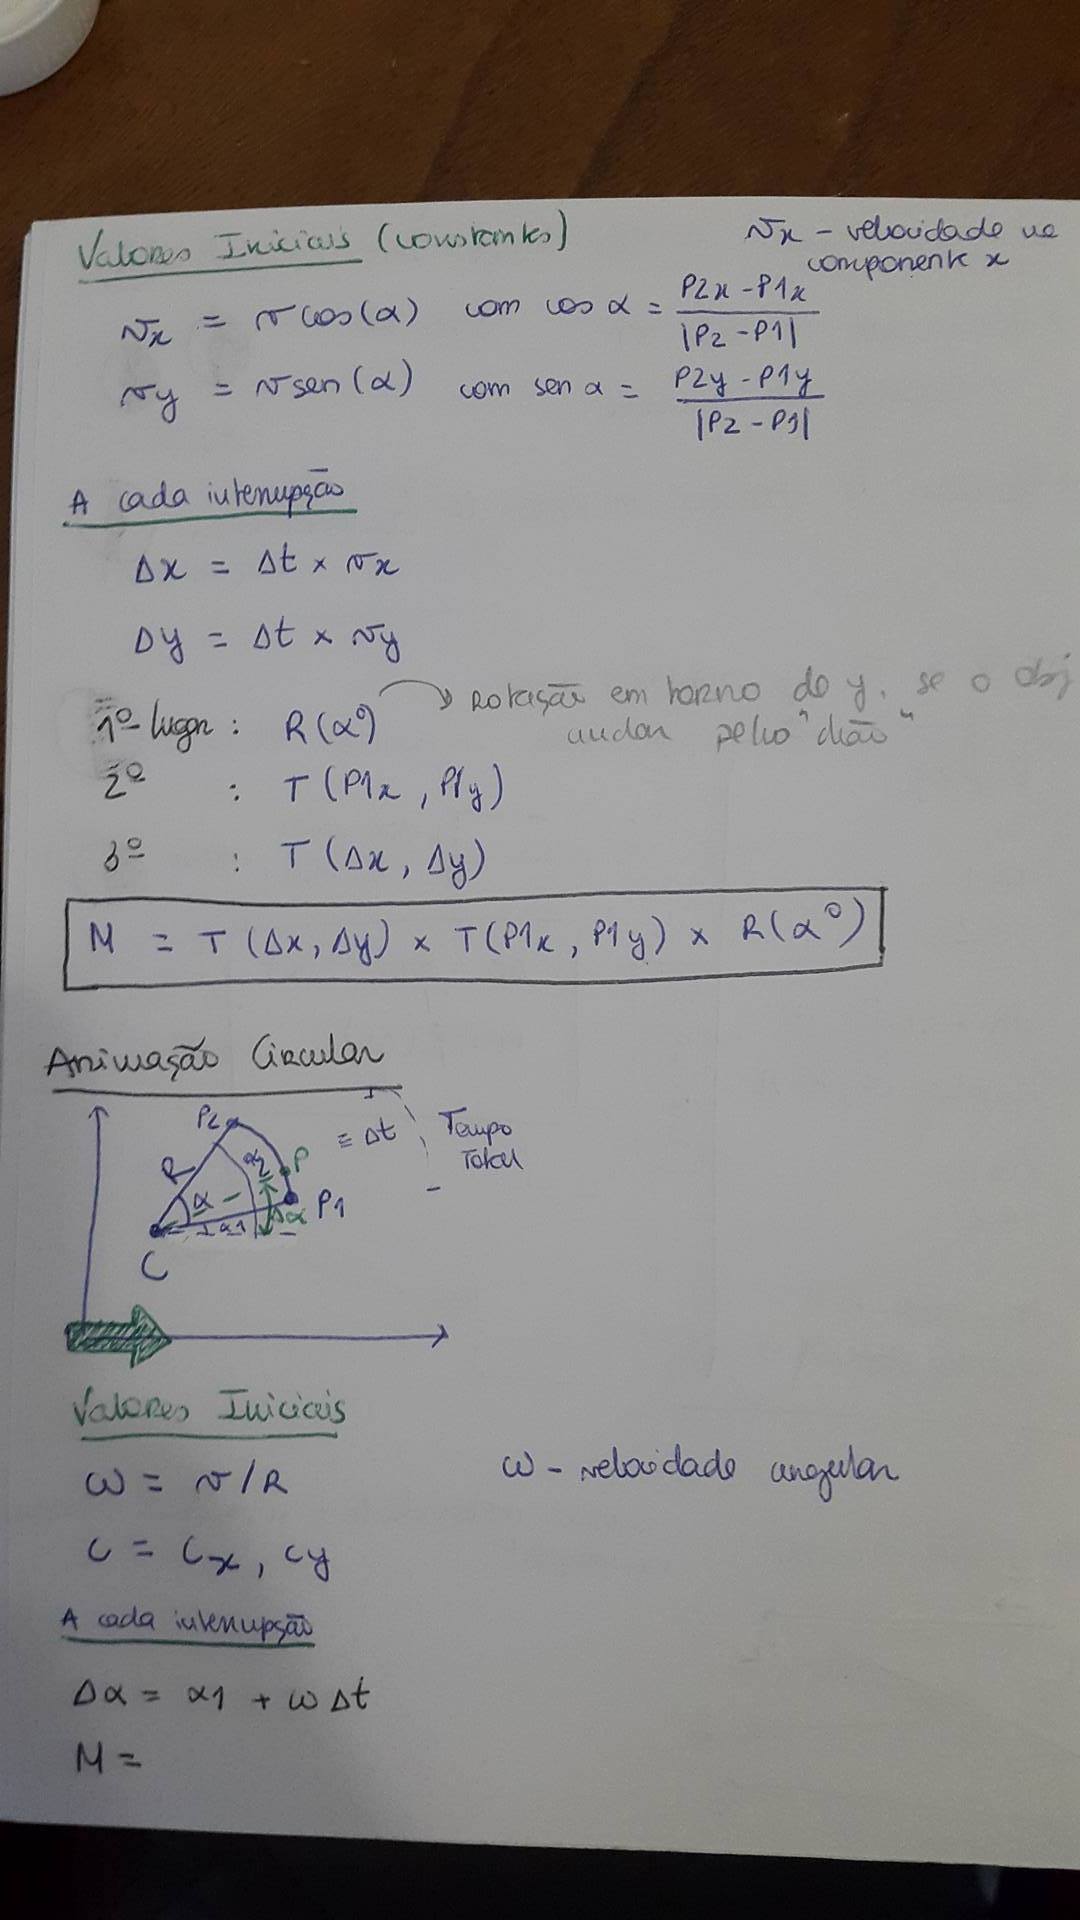 Valores Iniciais (constantes)
vx - velocidade na
componente x
vx = v cos(α) com cos α = P2x - P1x / |P2 - P1|
vy = v sen(α) com sen α = P2y - P1y / |P2 - P1|
A cada interrupção
Δx = Δt × vx
Δy = Δt × vy
1º lugar : R(α°) → Rotação em torno do y, se o obj
andar pelo "chão"
2º : T(P1x, P1y)
3º : T(Δx, Δy)
M = T(Δx, Δy) × T(P1x, P1y) × R(α°)
Animação Circular
P2
R
α
α2
P
≡ Δt
Tempo
Total
P1
Δα
α1
C
Valores Iniciais
ω = v/R
ω - velocidade angular
C = Cx, Cy
A cada interrupção
Δα = α1 + ωΔt
M =